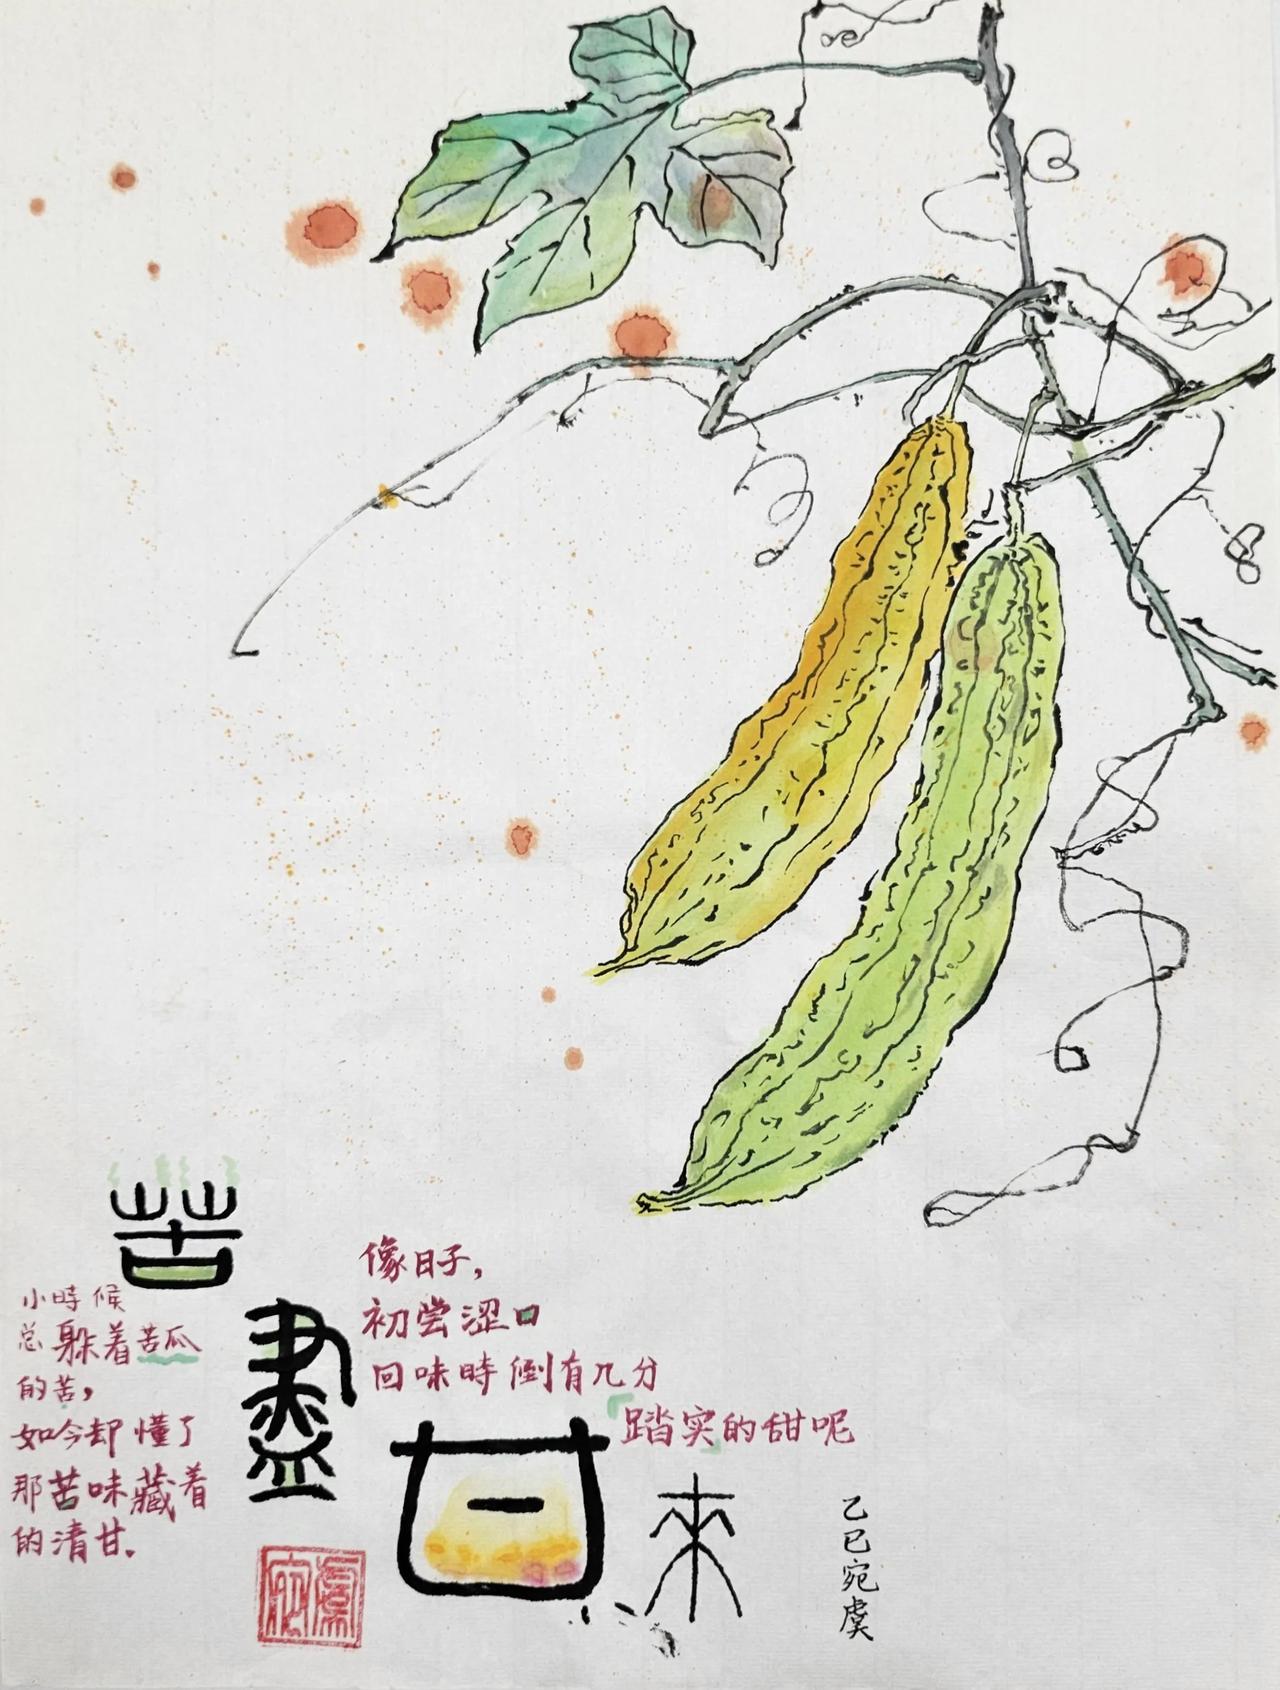 苦
盡
甘
來
小時候
总躲着苦瓜
的苦，
如今却懂了
那苦味藏着
的清甘.
像日子，
初尝涩口
回味時倒有几分
踏实的甜呢
乙巳宛虞